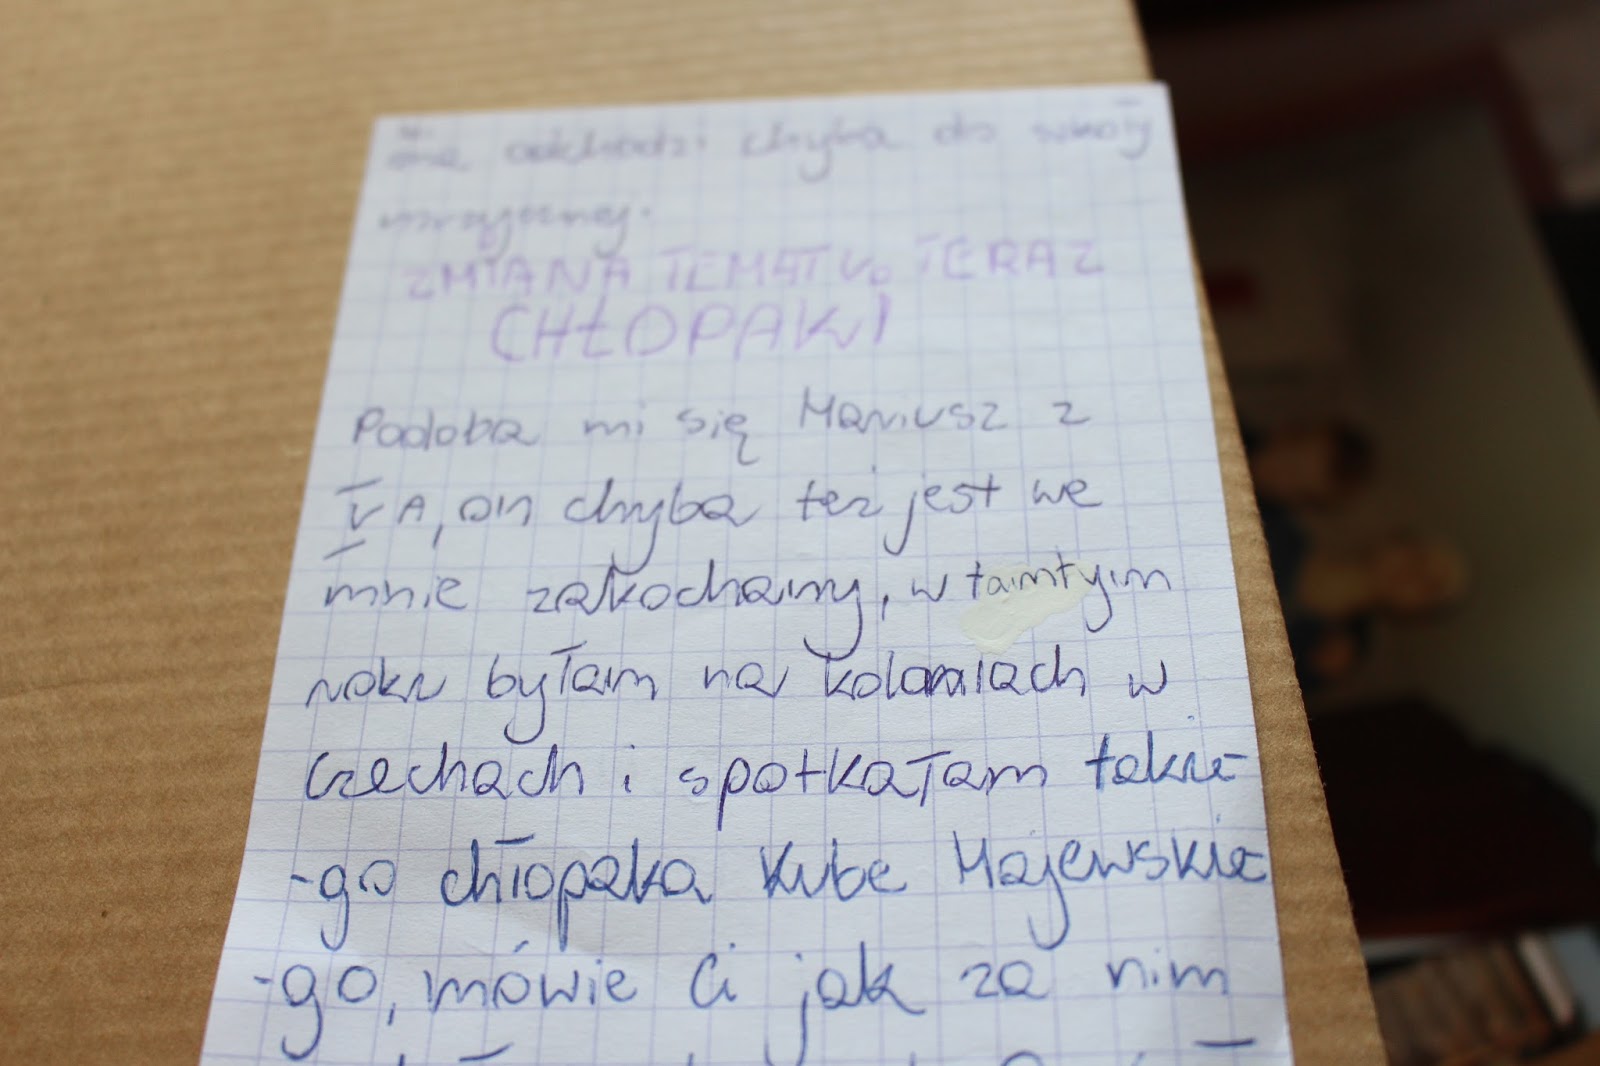 ona odchodzi chyba do szkoły
muzycznej.
ZMIANA TEMATU. TERAZ
CHŁOPAKI
Podoba mi się Mariusz z
V A, on chyba też jest we
mnie zakochany, w tamtym
roku byłam na koloniach w
Czechach i spotkałam takie-
-go chłopaka Kube Majewskie-
-go, mówie Ci jak za nim